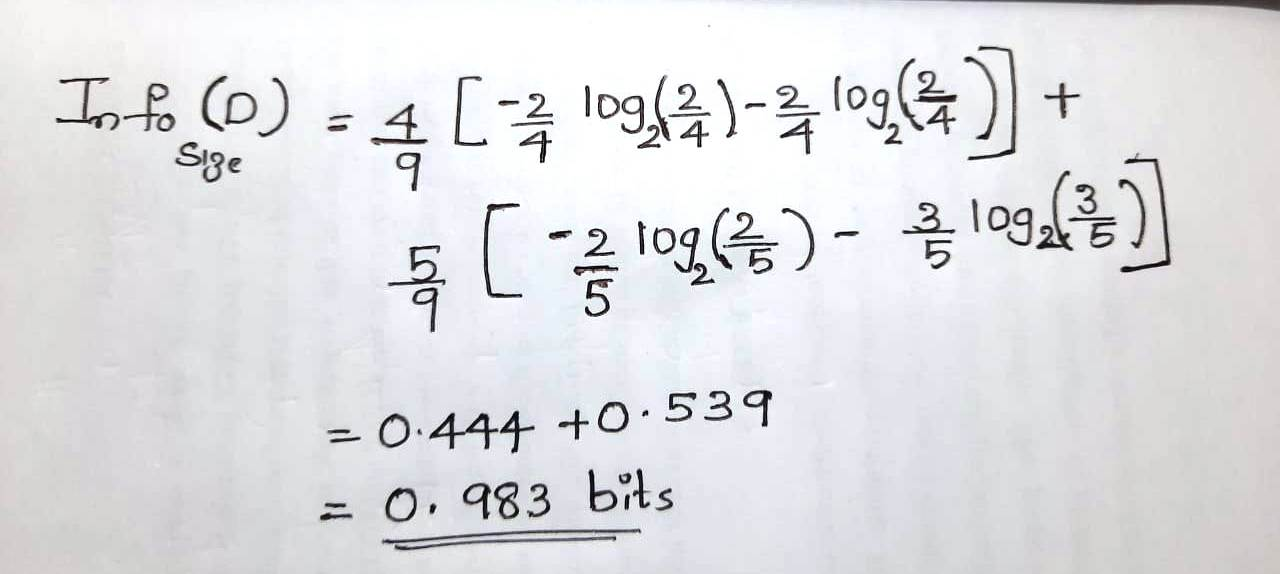 Info_Size (D) = 4/9 [ -2/4 log₂(2/4) - 2/4 log₂(2/4) ] +
5/9 [ -2/5 log₂(2/5) - 3/5 log₂(3/5) ]
= 0.444 + 0.539
= 0.983 bits